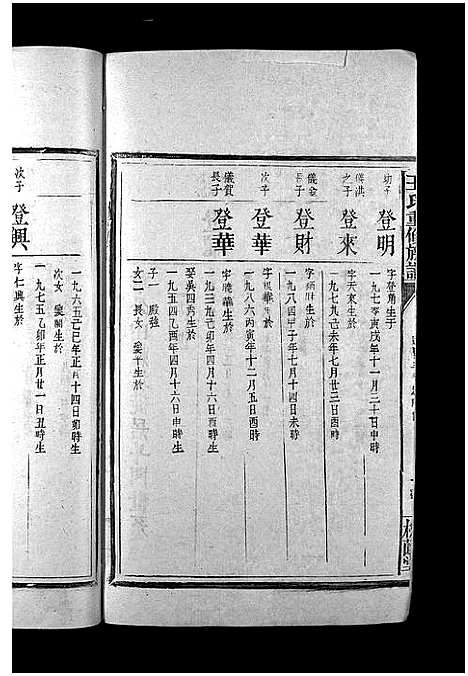 王氏重修族譜
幼子
登明
字登角生于
一九七零庚戌年十一月三十日申時生
儀洪之子
登來
字天來生於
一九七九己未年七月廿三日酉時
儀金長子
登財
生於
一九八四甲子年七月十四日酉時
次子
登華
生於
一九八六丙寅年十二月五日酉時
儀賀長子
登華
字 華生於
一九三九己卯年四月十六日酉時生
娶吳四秀生於
一九五四乙酉年四月十六日申時生
子一 殿強
女二 長女 生於
一九六五乙巳年正月十四日卯時生
次女 生於
一九七五乙卯年正月廿一日丑時生
次子
登興
字仁興生於